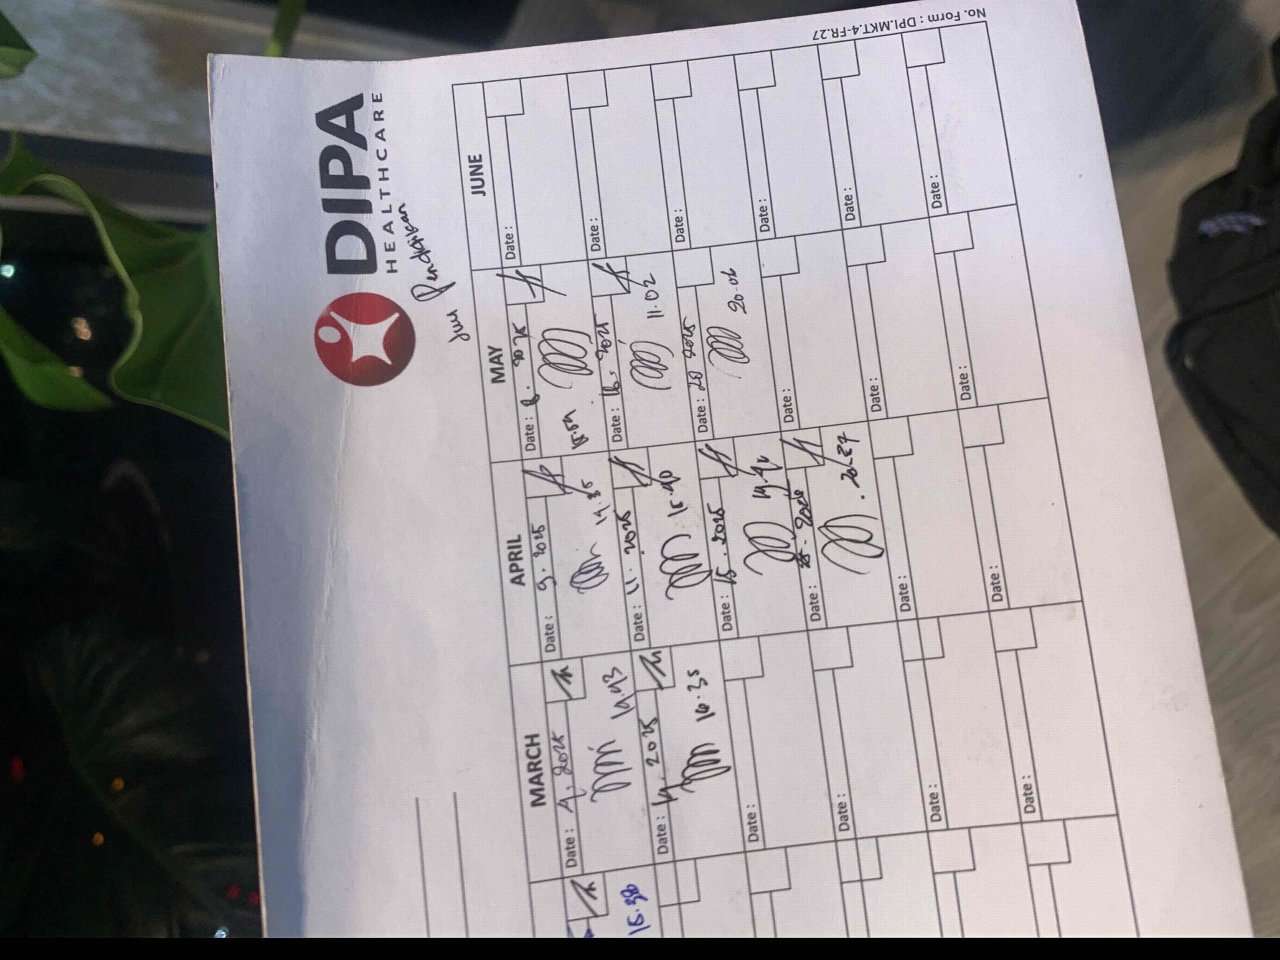 DIPA
HEALTHCARE
MARCH
APRIL
MAY
JUNE
Date : 4. 2025
Date : 9. 2025
Date : 8. 2025
Date :
14.43
14.35
15.54
Date : 14. 2025
Date : 11. 2025
Date : 16. 2025
Date :
15.38
16.35
15.40
11.02
Date :
Date : 15. 2025
Date : 20 2025
Date :
14.42
20.06
Date :
Date :
Date :
Date :
20.27
Date :
Date :
Date :
Date :
Date :
Date :
Date :
Date :
No. Form : DPI.MKT.4-FR.27